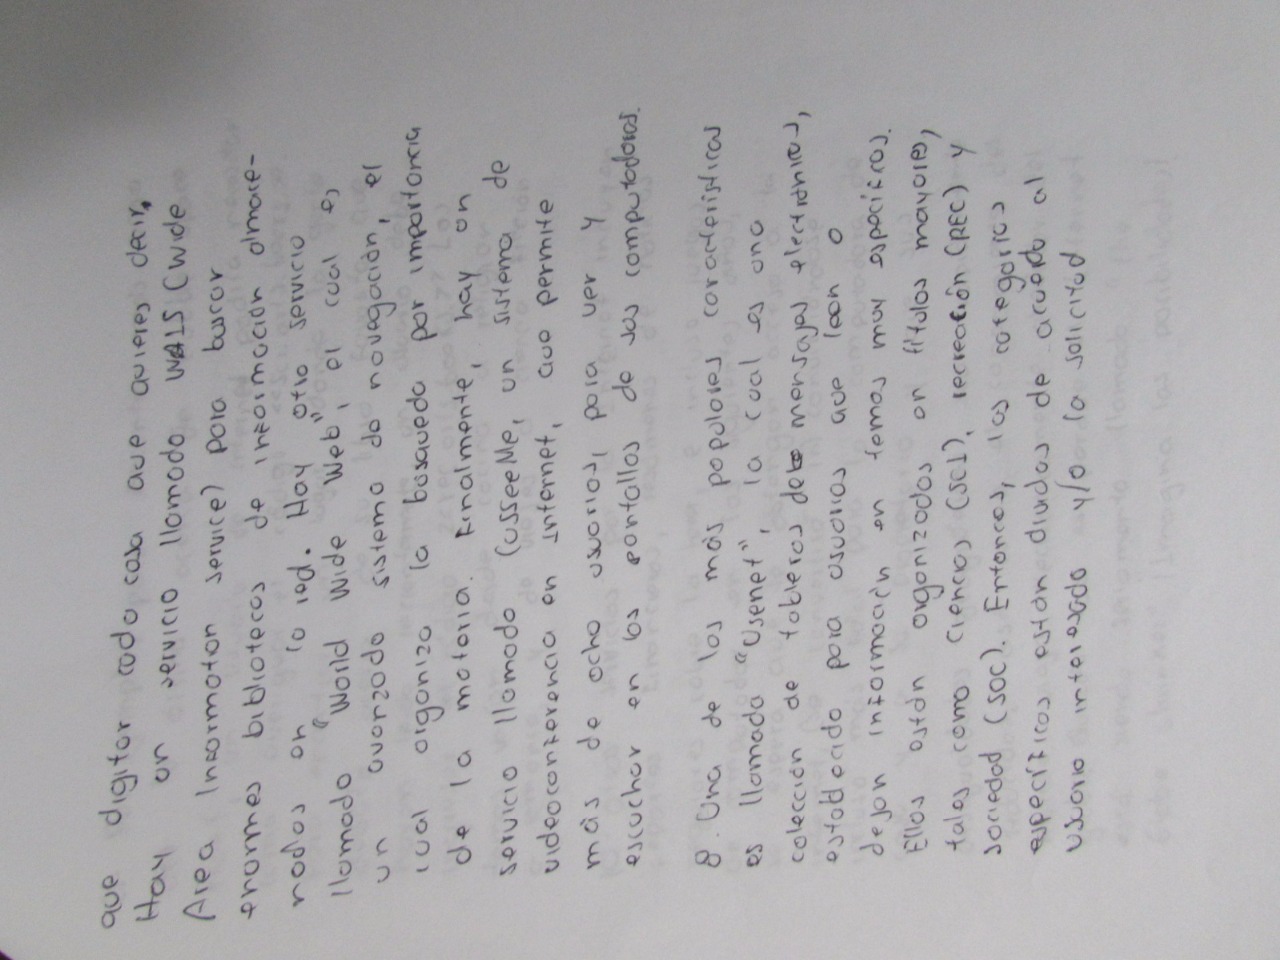 que digitar cada cosa que quieres decir.
Hay un servicio llamado WAIS (Wide
Area Informaton Service) para buscar
enormes bibliotecas de información almace-
nadas en la red. Hay otro servicio
llamado "World Wide Web", el cual es
un avanzado sistema de navegación, el
cual organiza la búsqueda por importancia
de la materia. Finalmente, hay un
servicio llamado CUSeeMe, un sistema de
videoconferencia en Internet, que permite
más de ocho usuarios, para ver y
escuchar en las pantallas de sus computadoras.
8. Una de las más populares características
es llamada "Usenet", la cual es una
colección de tableros de mensajes electrónicos,
establecido para usuarios que lean o
dejan información en temas muy específicos.
Ellos están organizados en títulos mayores,
tales como ciencias (SCI), recreación (REC) y
sociedad (SOC). Entonces, las categorías
específicas están dividas de acuerdo al
usuario interesado y/o la solicitud